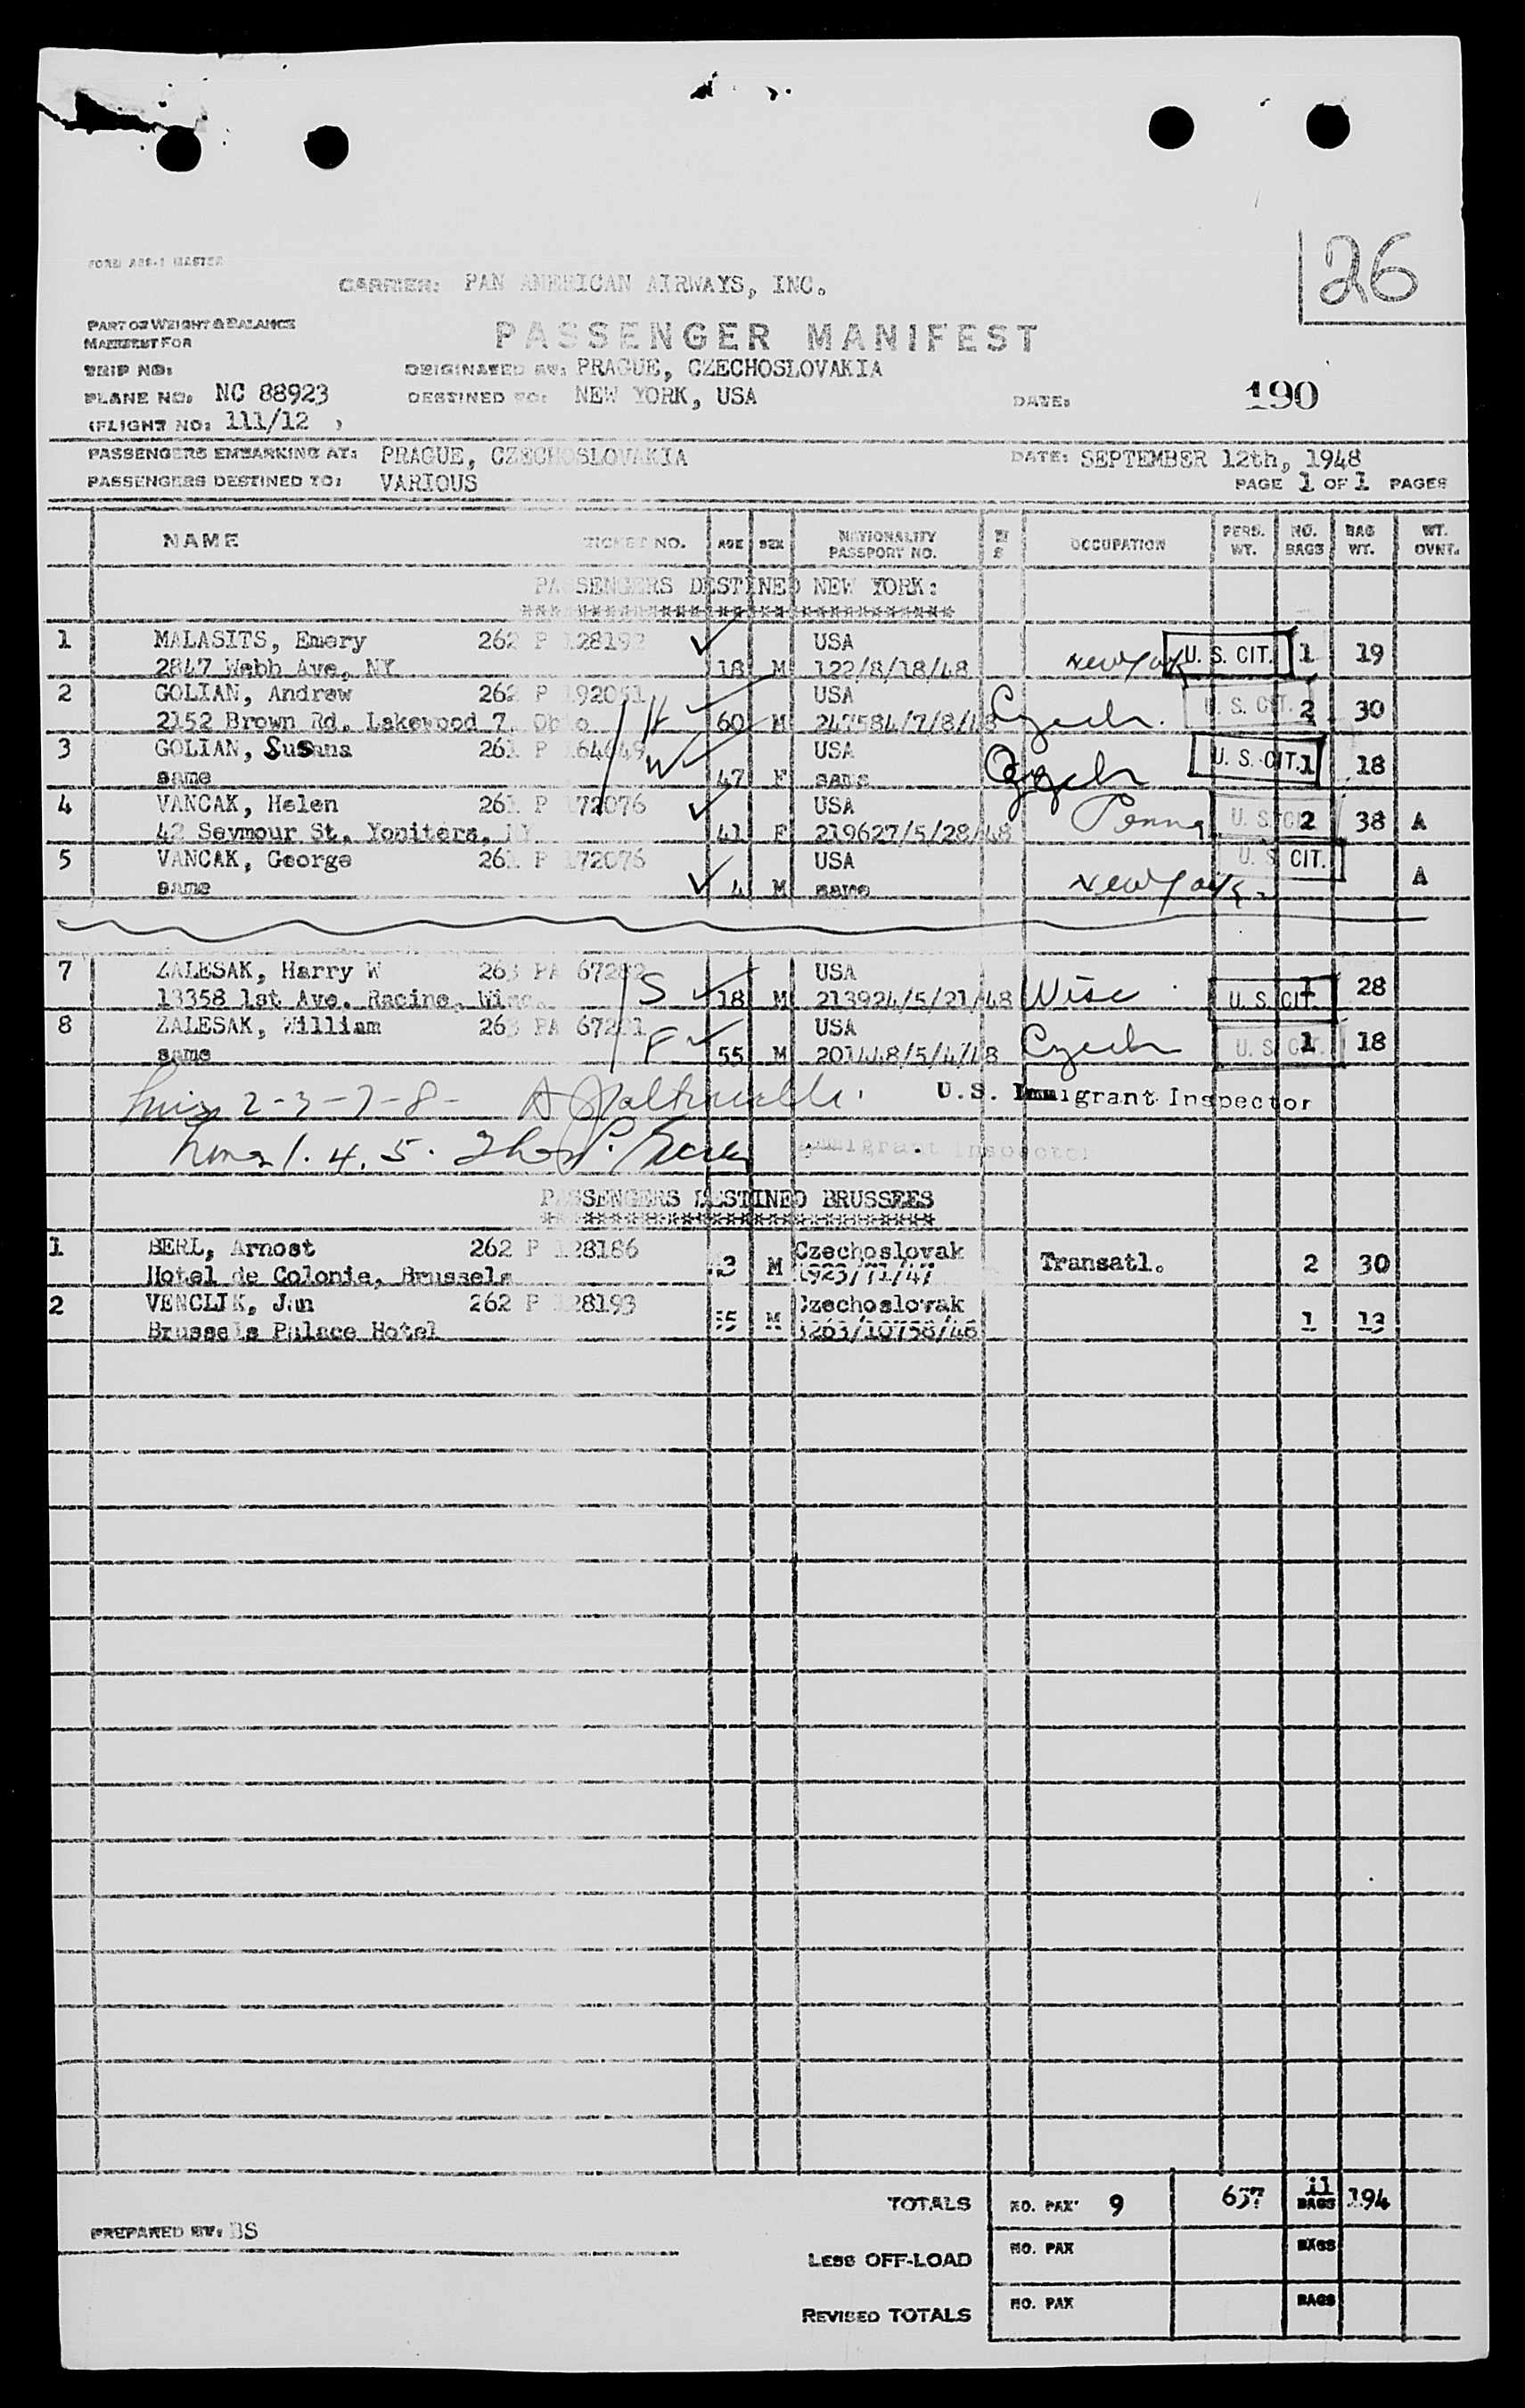 26
FORM ABS-1 MASTER
CARRIER: PAN AMERICAN AIRWAYS, INC.
PART OF WEIGHT & BALANCE
MANIFEST FOR
PASSENGER MANIFEST
TRIP NO:
ORIGINATED AT: PRAGUE, CZECHOSLOVAKIA
PLANE NO: NC 88923
DESTINED TO: NEW YORK, USA
DATE: 190
(FLIGHT NO: 111/12 )
PASSENGERS EMBARKING AT: PRAGUE, CZECHOSLOVAKIA DATE: SEPTEMBER 12th, 1948
PASSENGERS DESTINED TO: VARIOUS PAGE 1 OF 1 PAGES
NAME TICKET NO. AGE SEX NATIONALITY PASSPORT NO. OCCUPATION PERS. WT. NO. BAGS BAG WT. WT. OVNT.
PASSENGERS DESTINED NEW YORK:
1 MALASITS, Emery 262 P 128192 USA U. S. CIT. 1 19
2847 Webb Ave, NY 18 M 122/8/18/48 New York
2 GOLIAN, Andrew 262 P 192051 USA U. S. CIT. 2 30
2152 Brown Rd. Lakewood 7, Ohio H 60 M 247584/7/8/48 Czech.
3 GOLIAN, Susana 261 P 164649 USA U. S. CIT. 1 18
same W 47 F same Czech
4 VANCAK, Helen 261 P 172076 USA U. S. CIT. 2 38 A
42 Seymour St. Yopiters, NY 41 F 219627/5/28/48 Penna
5 VANCAK, George 261 P 172076 USA U. S. CIT.
same 4 M same New York A
7 ZALESAK, Harry W 263 PA 67282 USA 1 28
13358 1st Ave. Racine, Wisc. S 18 M 213924/5/21/48 Wisc U. S. CIT.
8 ZALESAK, William 263 PA 67281 USA 1 18
same F 55 M 201448/5/4/48 Czech U. S. CIT.
2-3-7-8- U.S. Immigrant Inspector
1. 4. 5. Immigrant Inspector
PASSENGERS DESTINED BRUSSEES
1 BERL, Arnost 262 P 128186 Czechoslovak Transatl. 2 30
Hotel de Colonie, Brussels M 1923/71/47
2 VENCLIK, Jan 262 P 128193 Czechoslovak 1 13
Brussels Palace Hotel M
TOTALS NO. PAX 9 657 11 BAGS 194
PREPARED BY: BS
LESS OFF-LOAD NO. PAX BAGS
REVISED TOTALS NO. PAX BAGS